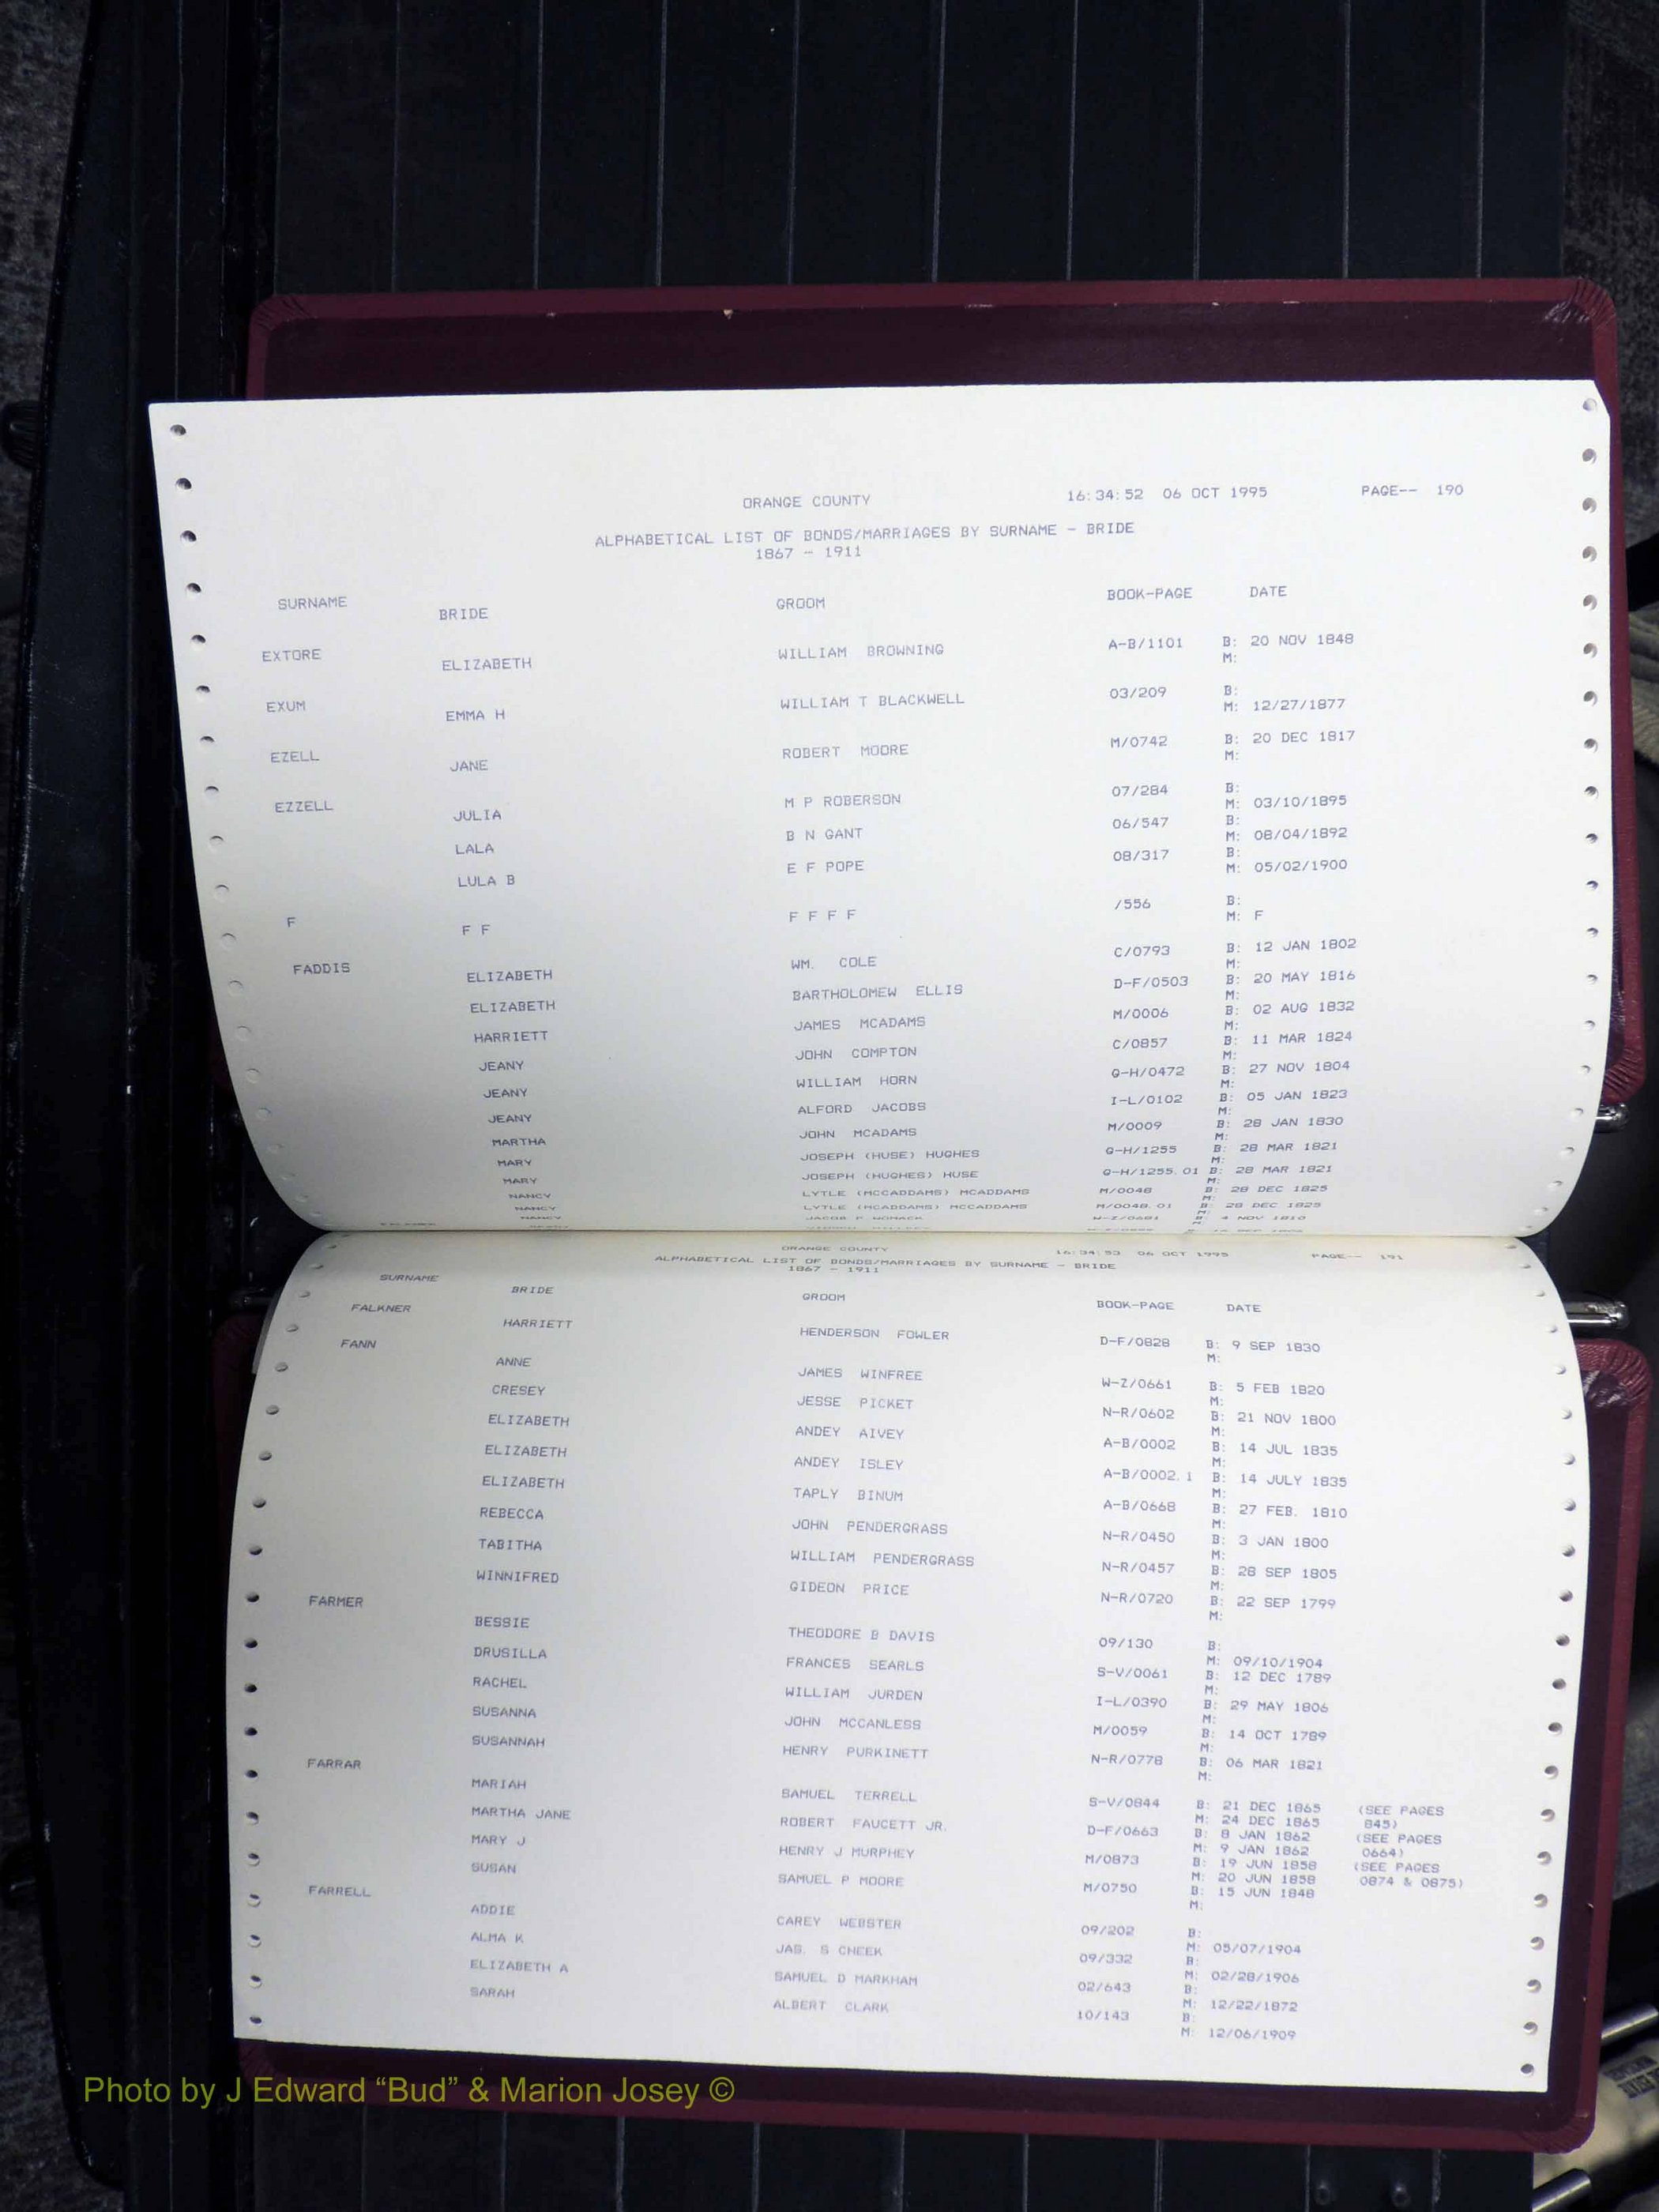 ORANGE COUNTY 16:34:52 06 OCT 1995 PAGE-- 190
ALPHABETICAL LIST OF BONDS/MARRIAGES BY SURNAME - BRIDE
1867 - 1911
SURNAME BRIDE GROOM BOOK-PAGE DATE
EXTORE ELIZABETH WILLIAM BROWNING A-B/1101 B: 20 NOV 1848
M:
EXUM EMMA H WILLIAM T BLACKWELL 03/209 B:
M: 12/27/1877
EZELL JANE ROBERT MOORE M/0742 B: 20 DEC 1817
M:
EZZELL JULIA M P ROBERSON 07/284 B:
M: 03/10/1895
LALA B N GANT 06/547 B:
M: 08/04/1892
LULA B E F POPE 08/317 B:
M: 05/02/1900
F F F F F F F /556 B:
M: F
FADDIS ELIZABETH WM. COLE C/0793 B: 12 JAN 1802
M:
ELIZABETH BARTHOLOMEW ELLIS D-F/0503 B: 20 MAY 1816
M:
HARRIETT JAMES MCADAMS M/0006 B: 02 AUG 1832
M:
JEANY JOHN COMPTON C/0857 B: 11 MAR 1824
M:
JEANY WILLIAM HORN G-H/0472 B: 27 NOV 1804
M:
JEANY ALFORD JACOBS I-L/0102 B: 05 JAN 1823
M:
MARTHA JOHN MCADAMS M/0009 B: 28 JAN 1830
M:
MARY JOSEPH (HUSE) HUGHES G-H/1255 B: 28 MAR 1821
M:
MARY JOSEPH (HUGHES) HUSE G-H/1255.01 B: 28 MAR 1821
M:
NANCY LYTLE (MCCADDAMS) MCADDAMS M/0048 B: 28 DEC 1825
M:
NANCY LYTLE (MCADDAMS) MCCADDAMS M/0048.01 B: 28 DEC 1825
M:
NANCY JACOB P WOMACK W-Z/0681 B: 4 NOV 1810
ORANGE COUNTY 16:34:53 06 OCT 1995 PAGE-- 191
ALPHABETICAL LIST OF BONDS/MARRIAGES BY SURNAME - BRIDE
1867 - 1911
SURNAME BRIDE GROOM BOOK-PAGE DATE
FALKNER HARRIETT HENDERSON FOWLER D-F/0828 B: 9 SEP 1830
M:
FANN ANNE JAMES WINFREE W-Z/0661 B: 5 FEB 1820
M:
CRESEY JESSE PICKET N-R/0602 B: 21 NOV 1800
M:
ELIZABETH ANDEY AIVEY A-B/0002 B: 14 JUL 1835
M:
ELIZABETH ANDEY ISLEY A-B/0002.1 B: 14 JULY 1835
M:
ELIZABETH TAPLY BINUM A-B/0668 B: 27 FEB. 1810
M:
REBECCA JOHN PENDERGRASS N-R/0450 B: 3 JAN 1800
M:
TABITHA WILLIAM PENDERGRASS N-R/0457 B: 28 SEP 1805
M:
WINNIFRED GIDEON PRICE N-R/0720 B: 22 SEP 1799
M:
FARMER BESSIE THEODORE B DAVIS 09/130 B:
M: 09/10/1904
DRUSILLA FRANCES SEARLS S-V/0061 B: 12 DEC 1789
M:
RACHEL WILLIAM JURDEN I-L/0390 B: 29 MAY 1806
M:
SUSANNA JOHN MCCANLESS M/0059 B: 14 OCT 1789
M:
SUSANNAH HENRY PURKINETT N-R/0778 B: 06 MAR 1821
M:
FARRAR MARIAH SAMUEL TERRELL S-V/0844 B: 21 DEC 1865 (SEE PAGES
M: 24 DEC 1865 845)
MARTHA JANE ROBERT FAUCETT JR. D-F/0663 B: 8 JAN 1862 (SEE PAGES
M: 9 JAN 1862 0664)
MARY J HENRY J MURPHEY M/0873 B: 19 JUN 1858 (SEE PAGES
M: 20 JUN 1858 0874 & 0875)
SUSAN SAMUEL P MOORE M/0750 B: 15 JUN 1848
M:
FARRELL ADDIE CAREY WEBSTER 09/202 B:
M: 05/07/1904
ALMA K JAS. S CHEEK 09/332 B:
M: 02/28/1906
ELIZABETH A SAMUEL D MARKHAM 02/643 B:
M: 12/22/1872
SARAH ALBERT CLARK 10/143 B:
M: 12/06/1909
Photo by J Edward “Bud” & Marion Josey ©